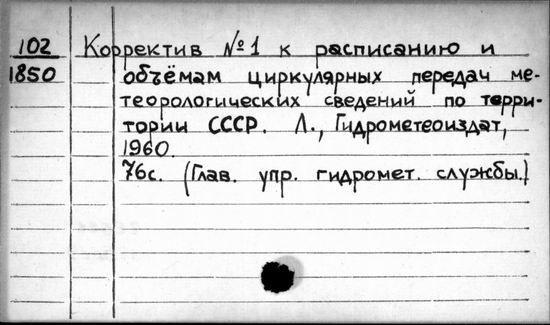 102 Корректив №1 к расписанию и
1850 объёмам циркулярных передач ме-
теорологических сведений по терри-
тории СССР. Л., Гидрометеоиздат,
1960.
76с. (Глав. упр. гидромет. службы.)